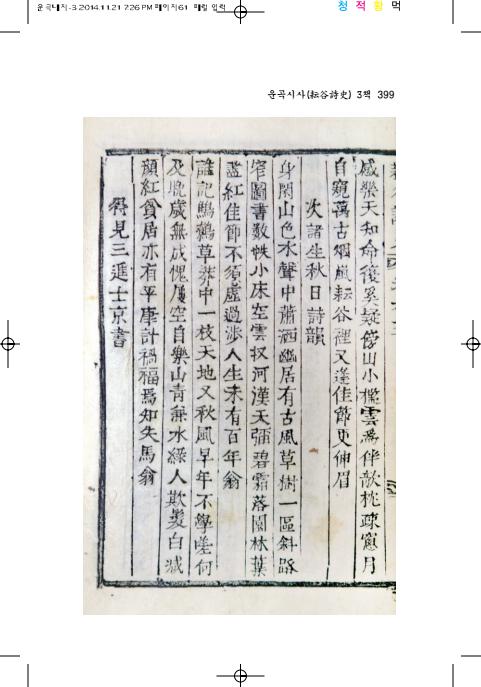 운곡시사-3 2014.11.21 7:26 PM 페이지61 매필 입력
청 적 황 먹
운곡시사(耘谷詩史) 3책 399
感樂天知命復奚疑傍山小檻雲爲伴欹枕疎窓月
自窺萬古獨風耘谷裡又逢佳節更伸眉
次諸生秋日詩韻
身閑山色水聲中蕭洒幽居有古風草樹一區斜路
窄圖書數帙小床空雲收河漢天彌碧霜落園林葉
盡紅佳節不須虛過涉人生未有百年翁
誰記鷦鷯草莽中一枝天地又秋風早年不學嗟何
及晩歲無成愧屢空自樂山靑兼水綠人欺髮白減
顔紅貧居亦有平康計禍福焉知失馬翁
得見三進士京書